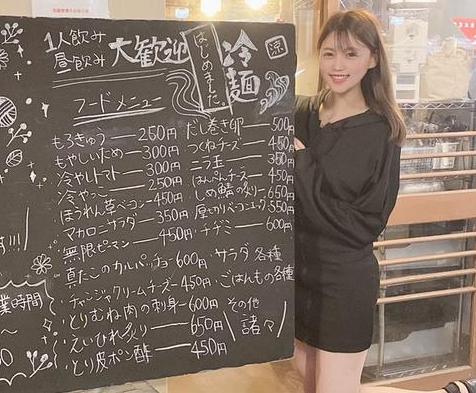 1人飲み
昼飲み
大歓迎
はじめました
冷麺
涼
フードメニュー
もろきゅう 250円
もやしいため 300円
冷やしトマト 300円
冷やっこ 250円
ほうれん草ベーコン 450円
マカローサラダ 350円
無限ピーマン 450円
真だこのカルパッチョ 600円
チャンジャクリームチーズ 450円
とりむね肉の刺身 600円
えいひれ炙り 650円
とり皮ポン酢 450円
だし巻き卵 500円
つくねチーズ 450円
ニラ玉 350円
はんぺんチーズ 450円
しめ鯖の炙り 650円
厚切りベーコンエッグ 550円
チヂミ 600円
サラダ 各種
ごはんもの各種
その他
諸々
業時間